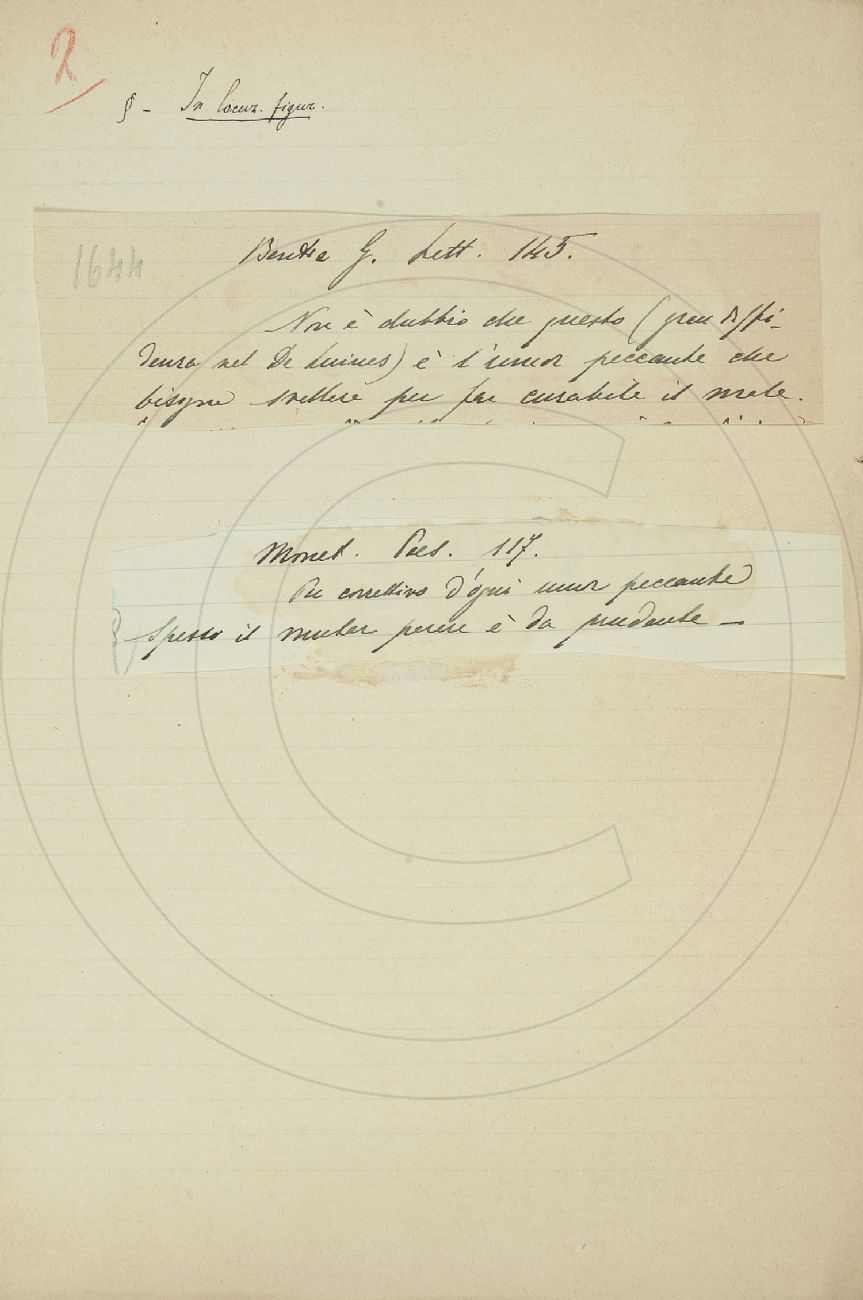 2
§ - In locuz. figur.
1644
Bentiv. G. Lett. 145.
Non è dubbio che questo (gran diffi-
denza nel De Luines) è l'umor peccante che
bisogna svellere per far curabile il male.
Monet. Poes. 117.
Più correttivo d'ogni umor peccante
Spesso il mutar paese è da prudente —